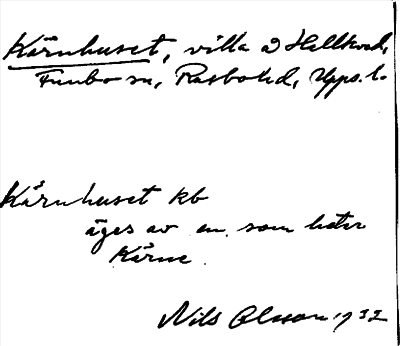 Kärnhuset, villa å Hellkock,
Funbo sn, Rasbo hd, Upps. l.
Kärnhuset kb
äges av en som heter
Kärne
Nils Olsson 1932